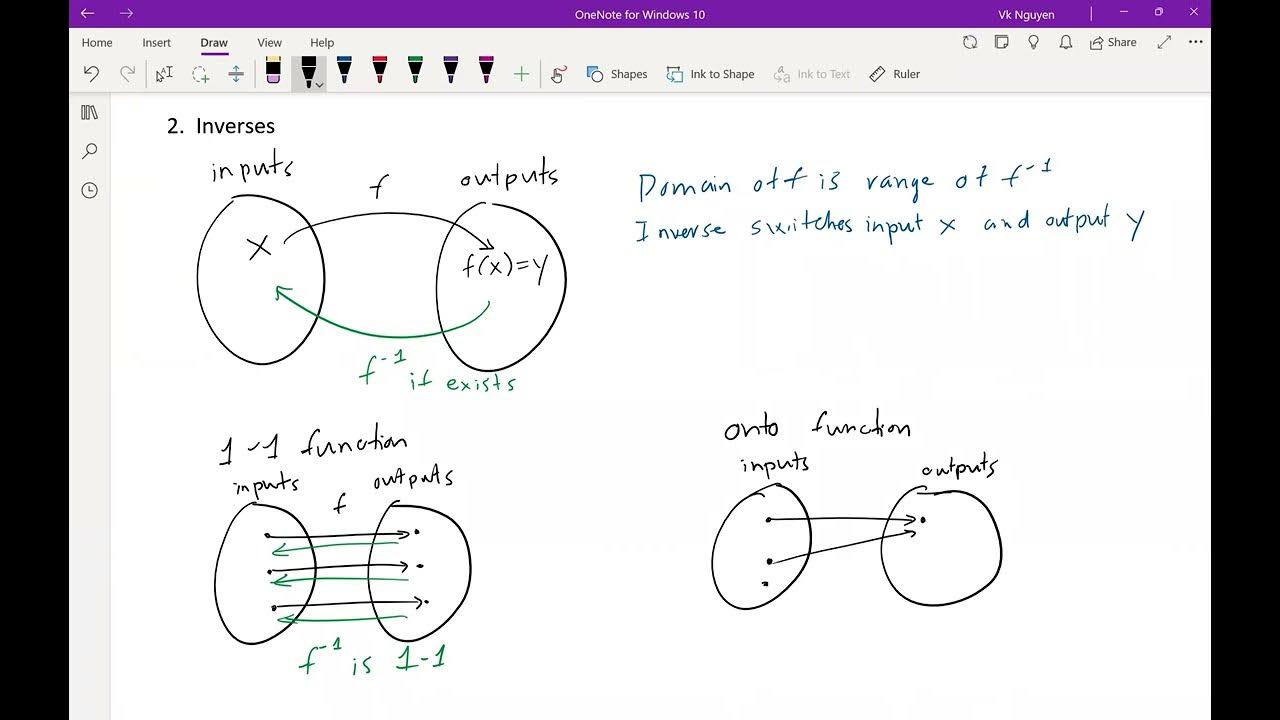 OneNote for Windows 10
Vk Nguyen
Home Insert Draw View Help
Share
Shapes Ink to Shape Ink to Text Ruler
2. Inverses
inputs
f
outputs
X
f(x)=y
f⁻¹ if exists
Domain of f is range of f⁻¹
Inverse switches input x and output y
1-1 function
inputs f outputs
f⁻¹ is 1-1
onto function
inputs
outputs